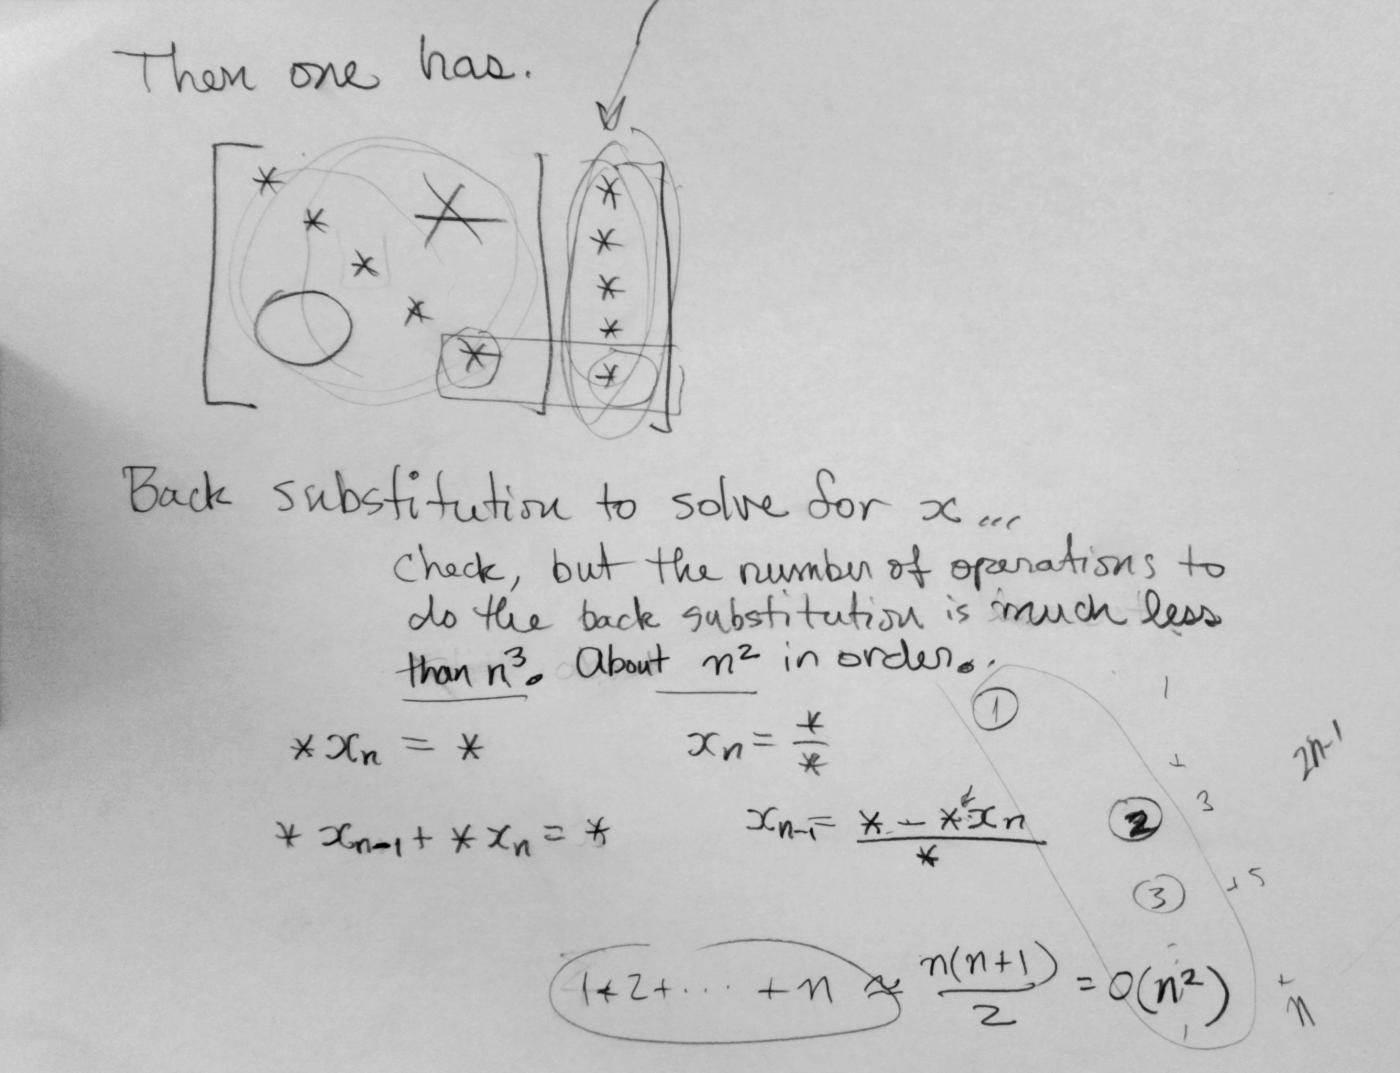 Then one has.
* *
* *
* *
* *
* *
*
Back substitution to solve for x...
Check, but the number of operations to
do the back substitution is much less
than n³. About n² in order.
①
1
* xₙ = * xₙ = */*
+
2n-1
* xₙ₋₁ + * xₙ = * xₙ₋₁ = (* - * xₙ)/* ② 3
③ +5
1+2+··· +n ≈ n(n+1)/2 = O(n²)
+
n